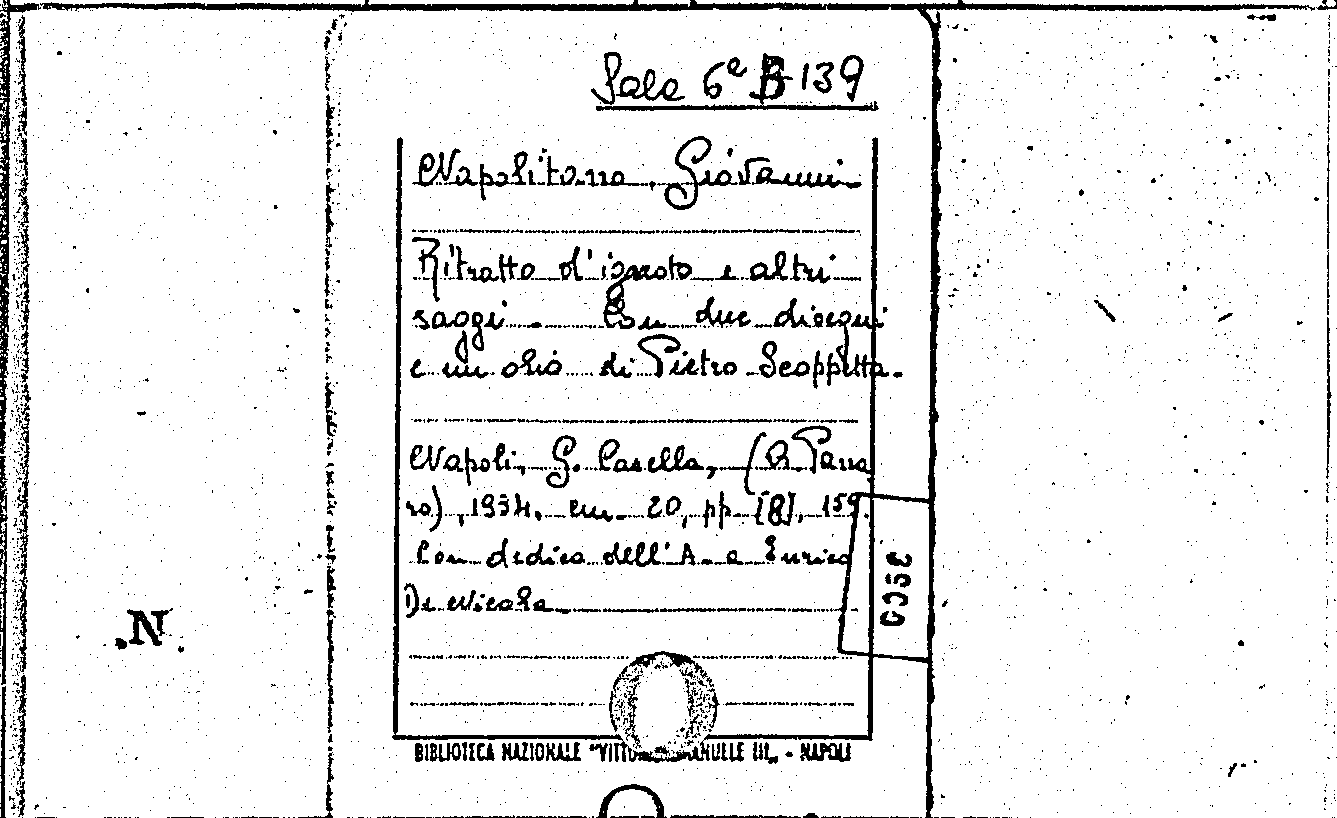 Sala 6ª B 139
Napolitano, Giovanni
Ritratto d'ignoto e altri
saggi. Con due disegni
e un olio di Pietro Scoppetta.
Napoli, G. Casella, (R. Pana
ro), 1934. cm. 20, pp. [8], 159.
Con dedica dell'A. a Enrico
De Nicola
BIBLIOTECA NAZIONALE "VITTO ANUELLE III„ - NAPOLI
.N.